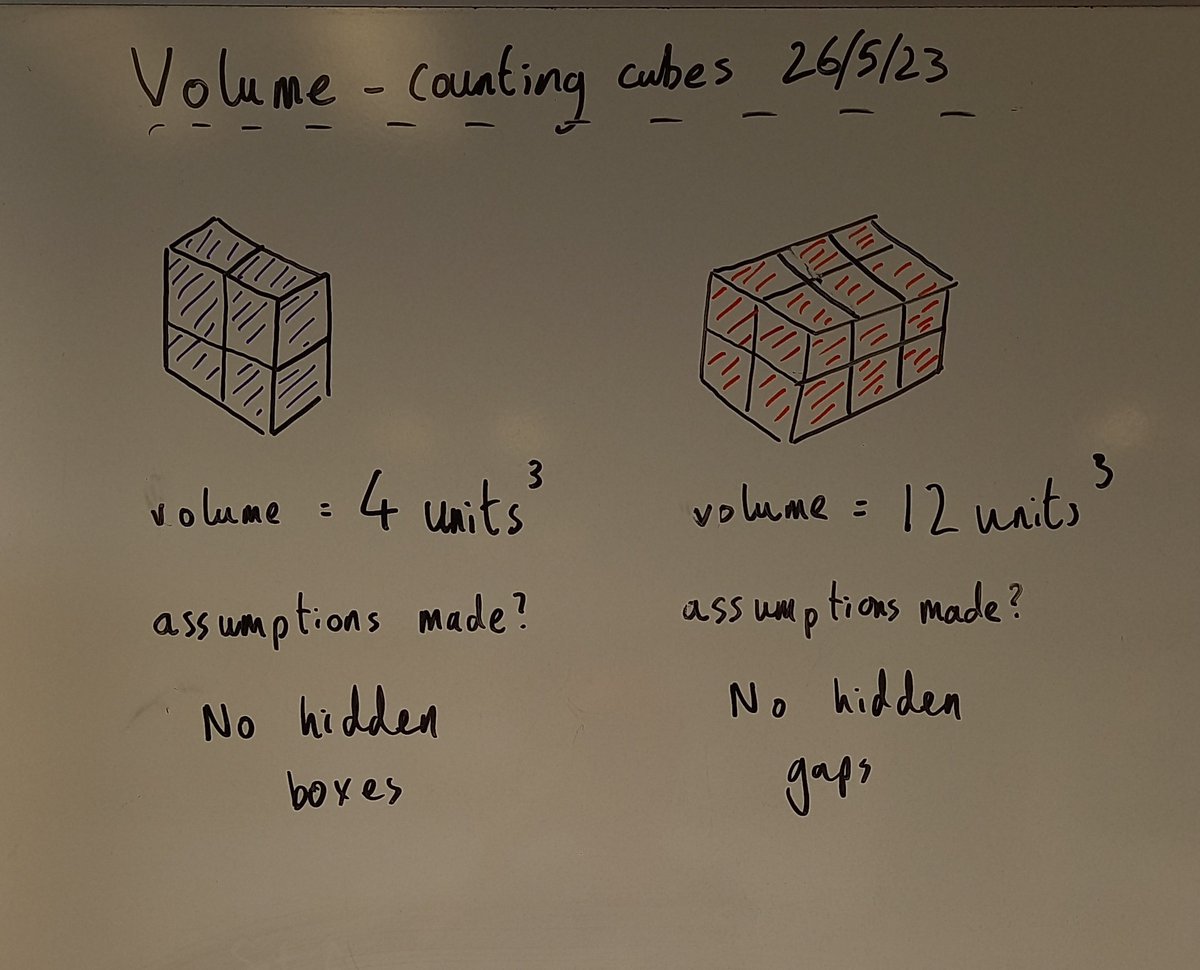 Volume - Counting cubes 26/5/23
volume = 4 units³
volume = 12 units³
assumptions made?
assumptions made?
No hidden
boxes
No hidden
gaps